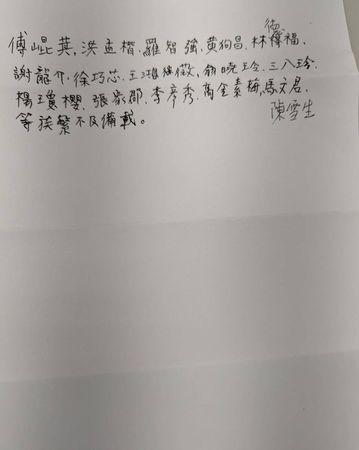 傅崐英、洪孟楷、羅智強、黃狗昌、林德福、
謝龍介、徐巧芯、王鴻薇、翁曉玲、三八玲、
楊瓊櫻、張嘉郡、李彥秀、高金素梅、馬文君、
陳雪生
等族繁不及備載。